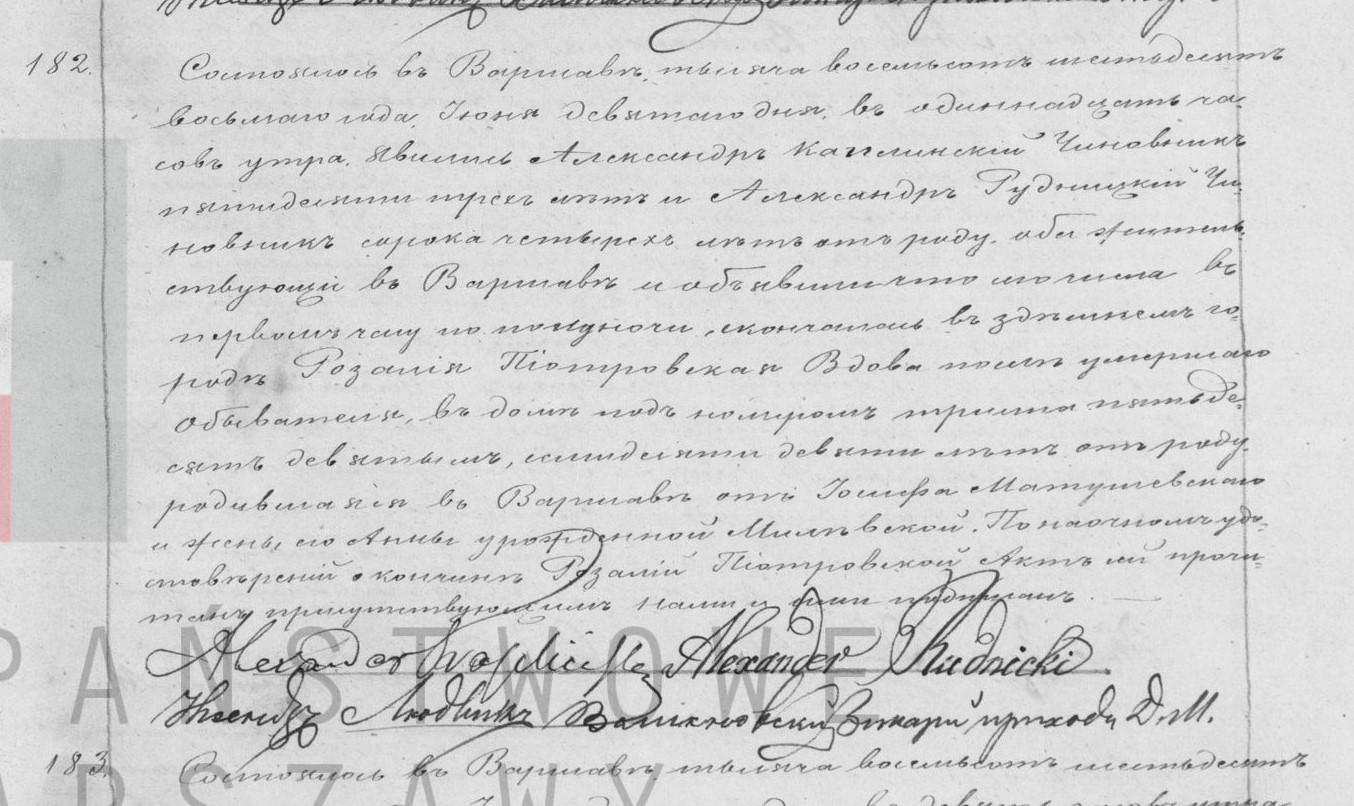 182. Состоялось въ Варшавѣ, тысяча восемьсотъ шестьдесятъ
восьмаго года, Іюня девятаго дня, въ одиннадцать ча-
совъ утра. Явились Александръ Каплинскій Чиновникъ
пятидесяти трехъ лѣтъ и Александръ Рудницкій Чи-
новникъ сорока четырехъ лѣтъ отъ роду, оба житель-
ствующіи въ Варшавѣ и объявили что сего числа въ
первомъ часу по полуночи, скончалась въ здѣшнемъ го-
родѣ Розалія Піотровская Вдова послѣ умершаго
обывателя, въ домѣ подъ номеромъ триста пятьде-
сятъ девятымъ, семидесяти девяти лѣтъ отъ роду,
родившаяся въ Варшавѣ отъ Іосифа Матушевскаго
и жены его Анны урожденной Милѣвской. По наочномъ удо-
стовѣреніи о кончинѣ Розаліи Піотровской Актъ сей прочи-
танъ присутствующимъ нами и ими подписанъ.
Alexander Alexander Rudnicki
Ксендзъ Людвикъ Викарій прихода Д. М.
183. Состоялось въ Варшавѣ тысяча восемьсотъ шестьдесятъ
PAŃSTWOWE
ARSZAWY